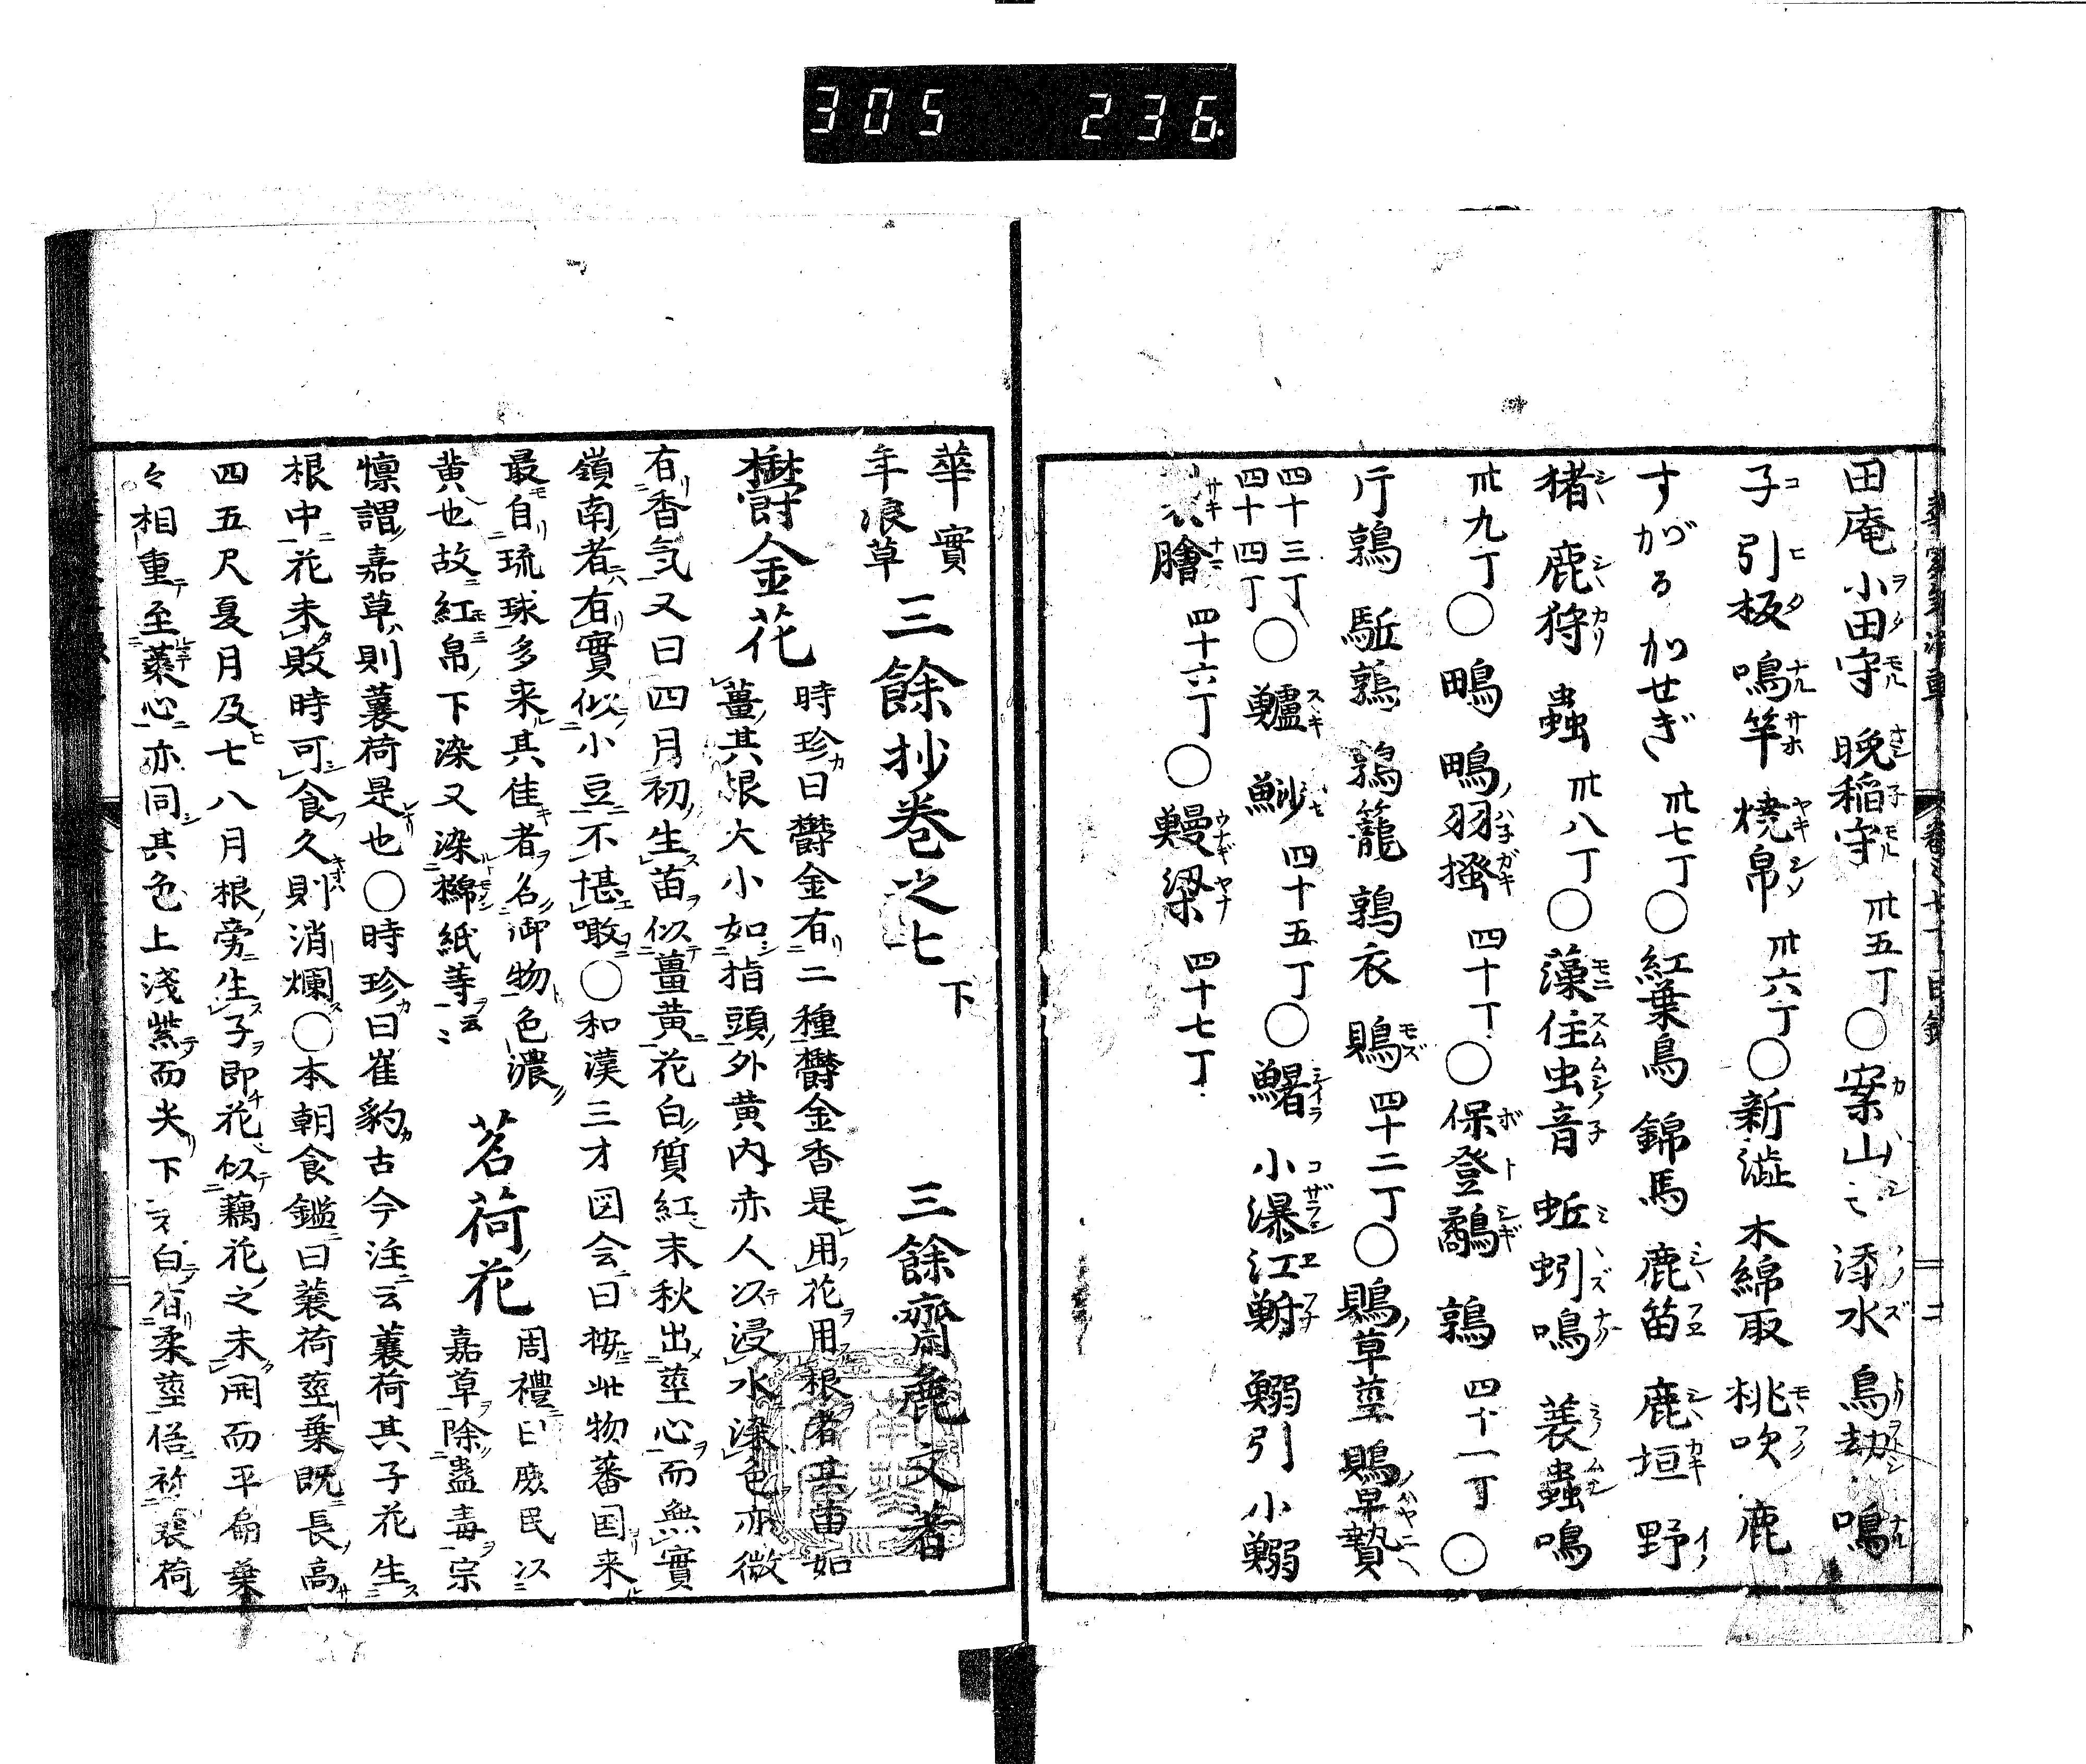 305 236
田庵 小田守 晩稲守 卅五丁〇案山〻 添水 鳥劫 鳴
子 引板 鳴竿 焼帛 卅六丁〇新澁 木綿取 桃吹 鹿
すがる かせぎ 卅七丁〇紅葉鳥 錦馬 鹿笛 鹿垣 野
猪 鹿狩 蟲 卅八丁〇藻住虫音 蚯蚓鳴 蓑蟲鳴
卅九丁〇鴫 鴫羽掻 四十丁〇保登鷸 鶉 四十一丁〇
片鶉 駈鶉 鶉籠 鶉衣 鵙 四十二丁〇鵙草莖 鵙早贄
四十三丁
四十四丁〇鱸 魦 四十五丁〇鱪 小瀑 江鮒 鰯引 小鰯
膾 四十六丁〇鰻梁 四十七丁
華實
年浪草 三餘抄巻之七 下 三餘齋麁文著
欝金花 時珍曰欝金有二種欝金香是用花用根者其苗如
薑其根大小如指頭外黄内赤人以浸水染色亦微
有香気又曰四月初生苗似薑黄花白質紅末秋出莖心而無實
嶺南者有實似小豆不堪噉〇和漢三才図会曰按此物蕃国来
最自琉球多来其佳者名御物色濃
黄也故紅帛下染又染棉紙等云〻 茗荷花 周禮曰庶民以
嘉草除蠱毒宗
懍謂嘉草則蘘荷是也〇時珍曰崔豹古今注云蘘荷其子花生
根中花未敗時可食久則消爛〇本朝食鑑曰蘘荷莖葉既長高
四五尺夏月及七八月根旁生子即花似藕花之未開而平扁葉
々相重至蘂心亦同其色上淺紫而尖下白有柔莖俗称蘘荷